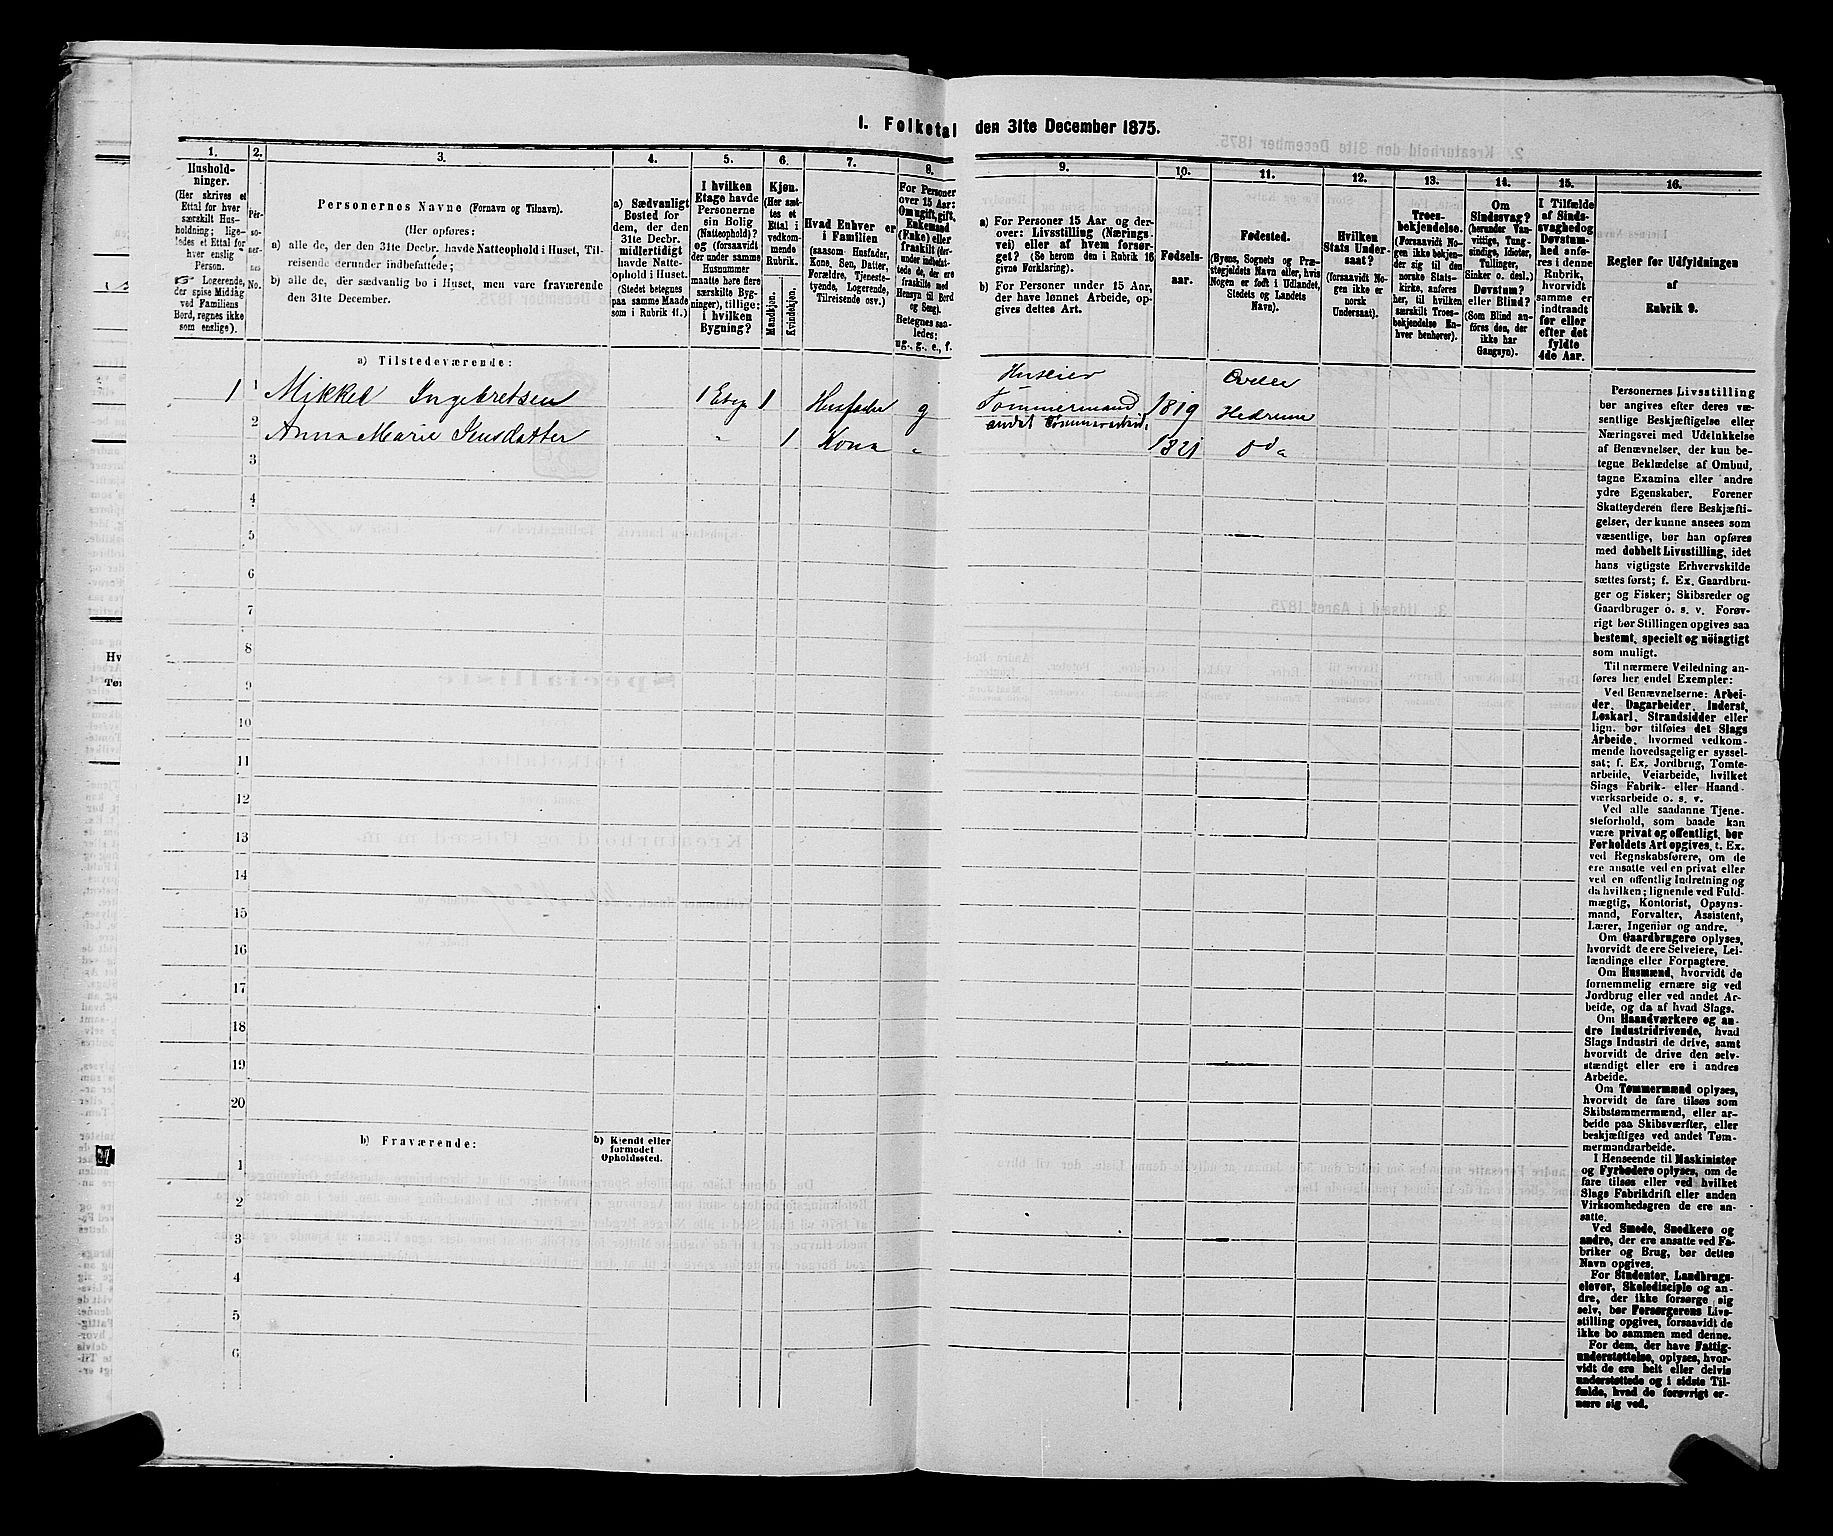 1. Folketal den 31te December 1875.
1.
2.
3.
4.
5.
6.
7.
8.
9.
10.
11.
12.
13.
14.
15.
16.
Hushold-
ninger.
(Her skrives et
Ettal for hver
særskilt Hus-
holdning; lige-
ledes et Ettal for
hver enslig
Person.
Logerende,
der spise Middag
ved Familiens
Bord, regnes ikke
som enslige).
Per-
so-
ner-
nes
No.
Personernes Navne (Fornavn og Tilnavn).
(Her opføres:
a) alle de, der den 31te Decbr. havde Natteophold i Huset, Til-
reisende derunder indbefattede;
b) alle de, der sædvanlig bo i Huset, men vare fraværende
den 31te December.
a) Sædvanligt
Bosted for
dem, der den
31te Decbr.
midlertidigt
havde Natte-
ophold i Huset.
(Stedet betegnes
paa samme Maade
som i Rubrik 11.)
I hvilken
Etage havde
Personerne
sin Bolig
(Natteophold)?
og (forsaavidt
der under samme
Husnummer
maatte høre flere
særskilte Byg-
ninger), tillige:
i hvilken
Bygning?
Kjøn.
(Her sæt-
tes et
Ettal i
vedkom-
mende
Rubrik.
Mandkjøn.
Kvindekjøn.
Hvad Enhver er
i Familien
(saasom Husfader,
Kone, Søn, Datter,
Forældre, Tjeneste-
tyende, Logerende,
Tilreisende osv.)
For Personer
over 15 Aar:
Om ugift, gift,
Enkemand
(Enke) eller
fraskilt (der-
under indbefat-
tede de, der ere
fraskilte med
Hensyn til Bord
og Seng).
Betegnes saa-
ledes:
ug., g., e., f.
a) For Personer 15 Aar og der-
over: Livsstilling (Nærings-
vei) eller af hvem forsør-
get? (Se herom den i Rubrik 16
givne Forklaring).
b) For Personer under 15 Aar,
der have lønnet Arbeide, op-
gives dettes Art.
Fødsels-
aar.
Fødested.
(Byens, Sognets og Præ-
stegjeldets Navn eller, hvis
Nogen er født i Udlandet,
Stedets og Landets
Navn).
Hvilken
Stats Under-
saat?
(forsaavidt No-
gen ikke er
norsk
Undersaat).
Troes-
bekjendelse.
(Forsaavidt No-
gen ikke bekjen-
der sig til den
norske Stats-
kirke, anføres
her, til hvilken
særskilt Troes-
bekjendelse En-
hver henhører).
Om
Sindssvag?
(herunder Van-
vittige, Tung-
sindige, Idioter,
Tullinger,
Sinker o. desl.)
Døvstum?
eller Blind?
(Som Blind an-
føres den, der
ikke har
Gangsyn).
I Tilfælde
af Sinds-
svaghed og
Døvstum-
hed anfø-
res i denne
Rubrik,
hvorvidt
samme er
indtraadt
før eller
efter det
fyldte
4de Aar.
Regler for Udfyldningen
af
Rubrik 9.
a) Tilstedeværende:
1 1 Mikkel Ingebretsen 1 Etag 1 Husfader g Huseier Tømmermand 1819 Hedrum
2 Anna Marie Jensdatter 1 Kona 1821
3
4
5
6
7
8
9
10
11
12
13
14
15
16
17
18
19
20
b) Fraværende:
b) Kjendt eller
formodet
Opholdssted.
1
2
3
4
5
6
Personernes Livsstilling
bør angives efter deres væ-
sentlige Beskjæftigelse eller
Næringsvei med Udelukkelse
af Benævnelser, der kun be-
tegne Beklædelse af Ombud,
tagne Examina eller andre
ydre Egenskaber. Forener
Skatteyderen flere Beskjæfti-
gelser, der kunne ansees som
væsentlige, bør han opføres
med dobbelt Livsstilling, idet
hans vigtigste Erhvervskilde
sættes først; f. Ex. Gaardbru-
ger og Fisker; Skibsreder og
Gaardbruger o. s. v. Forøv-
rigt bør Stillingen opgives saa
bestemt, specielt og nöiagtigt
som muligt.
Til nærmere Veiledning an-
føres her endel Exempler:
Ved Benævnelserne: Arbei-
der, Dagarbeider, Inderst,
Løskarl, Strandsidder eller
lign. bør tilføies det Slags
Arbeide, hvormed vedkom-
mende hovedsagelig er syssel-
sat; f. Ex. Jordbrug, Tomte-
arbeide, Veiarbeide, hvilket
Slags Fabrik- eller Haand-
værksarbeide o. s. v.
Ved alle saadanne Tjene-
steforhold, som baade kan
være privat og offentligt, bør
Forholdets Art opgives, t. Ex.
ved Regnskabsførere, om de
ere ansatte ved en privat eller
ved en offentlig Indretning og
da hvilken; lignende ved Fuld-
mægtig, Kontorist, Opsyns-
mand, Forvalter, Assistent,
Lærer, Ingeniør og andre.
Om Gaardbrugere oplyses,
hvorvidt de ere Selveiere, Lei-
lændinge eller Forpagtere.
Om Husmænd, hvorvidt de
fornemmelig ernære sig ved
Jordbrug eller ved andet Ar-
beide, og da af hvad Slags.
Om Haandværkere og an-
dre Industridrivende, hvad
Slags Industri de drive, samt
hvorvidt de drive den selv-
stændigt eller ere i andres
Arbeide.
Om Tømmermænd oplyses,
hvorvidt de fare tilsøs som
Skibstømmermænd, eller ar-
beide paa Skibsværfter, eller
beskjæftiges ved andet Tøm-
mermandsarbeide.
I Henseende til Maskinister
og Fyrbødere oplyses, om de
fare tilsøs eller ved hvilket
Slags Fabrikdrift eller anden
Virksomhedsgren de ere an-
satte.
Ved Smede, Snedkere og
andre, der ere ansatte ved Fa-
briker og Brug, bør dettes
Navn opgives.
For Studenter, Landbrugs-
elever, Skoledisciple og an-
dre, der ikke forsørge sig
selv, bør Forsørgerens Livs-
stilling opgives, forsaavidt de
ikke bo sammen med denne.
For dem, der have Fattig-
understøttelse, oplyses, hvor-
vidt de ere helt eller delvis
understøttede og i sidste Til-
fælde, hvad de forøvrigt er-
nære sig ved.